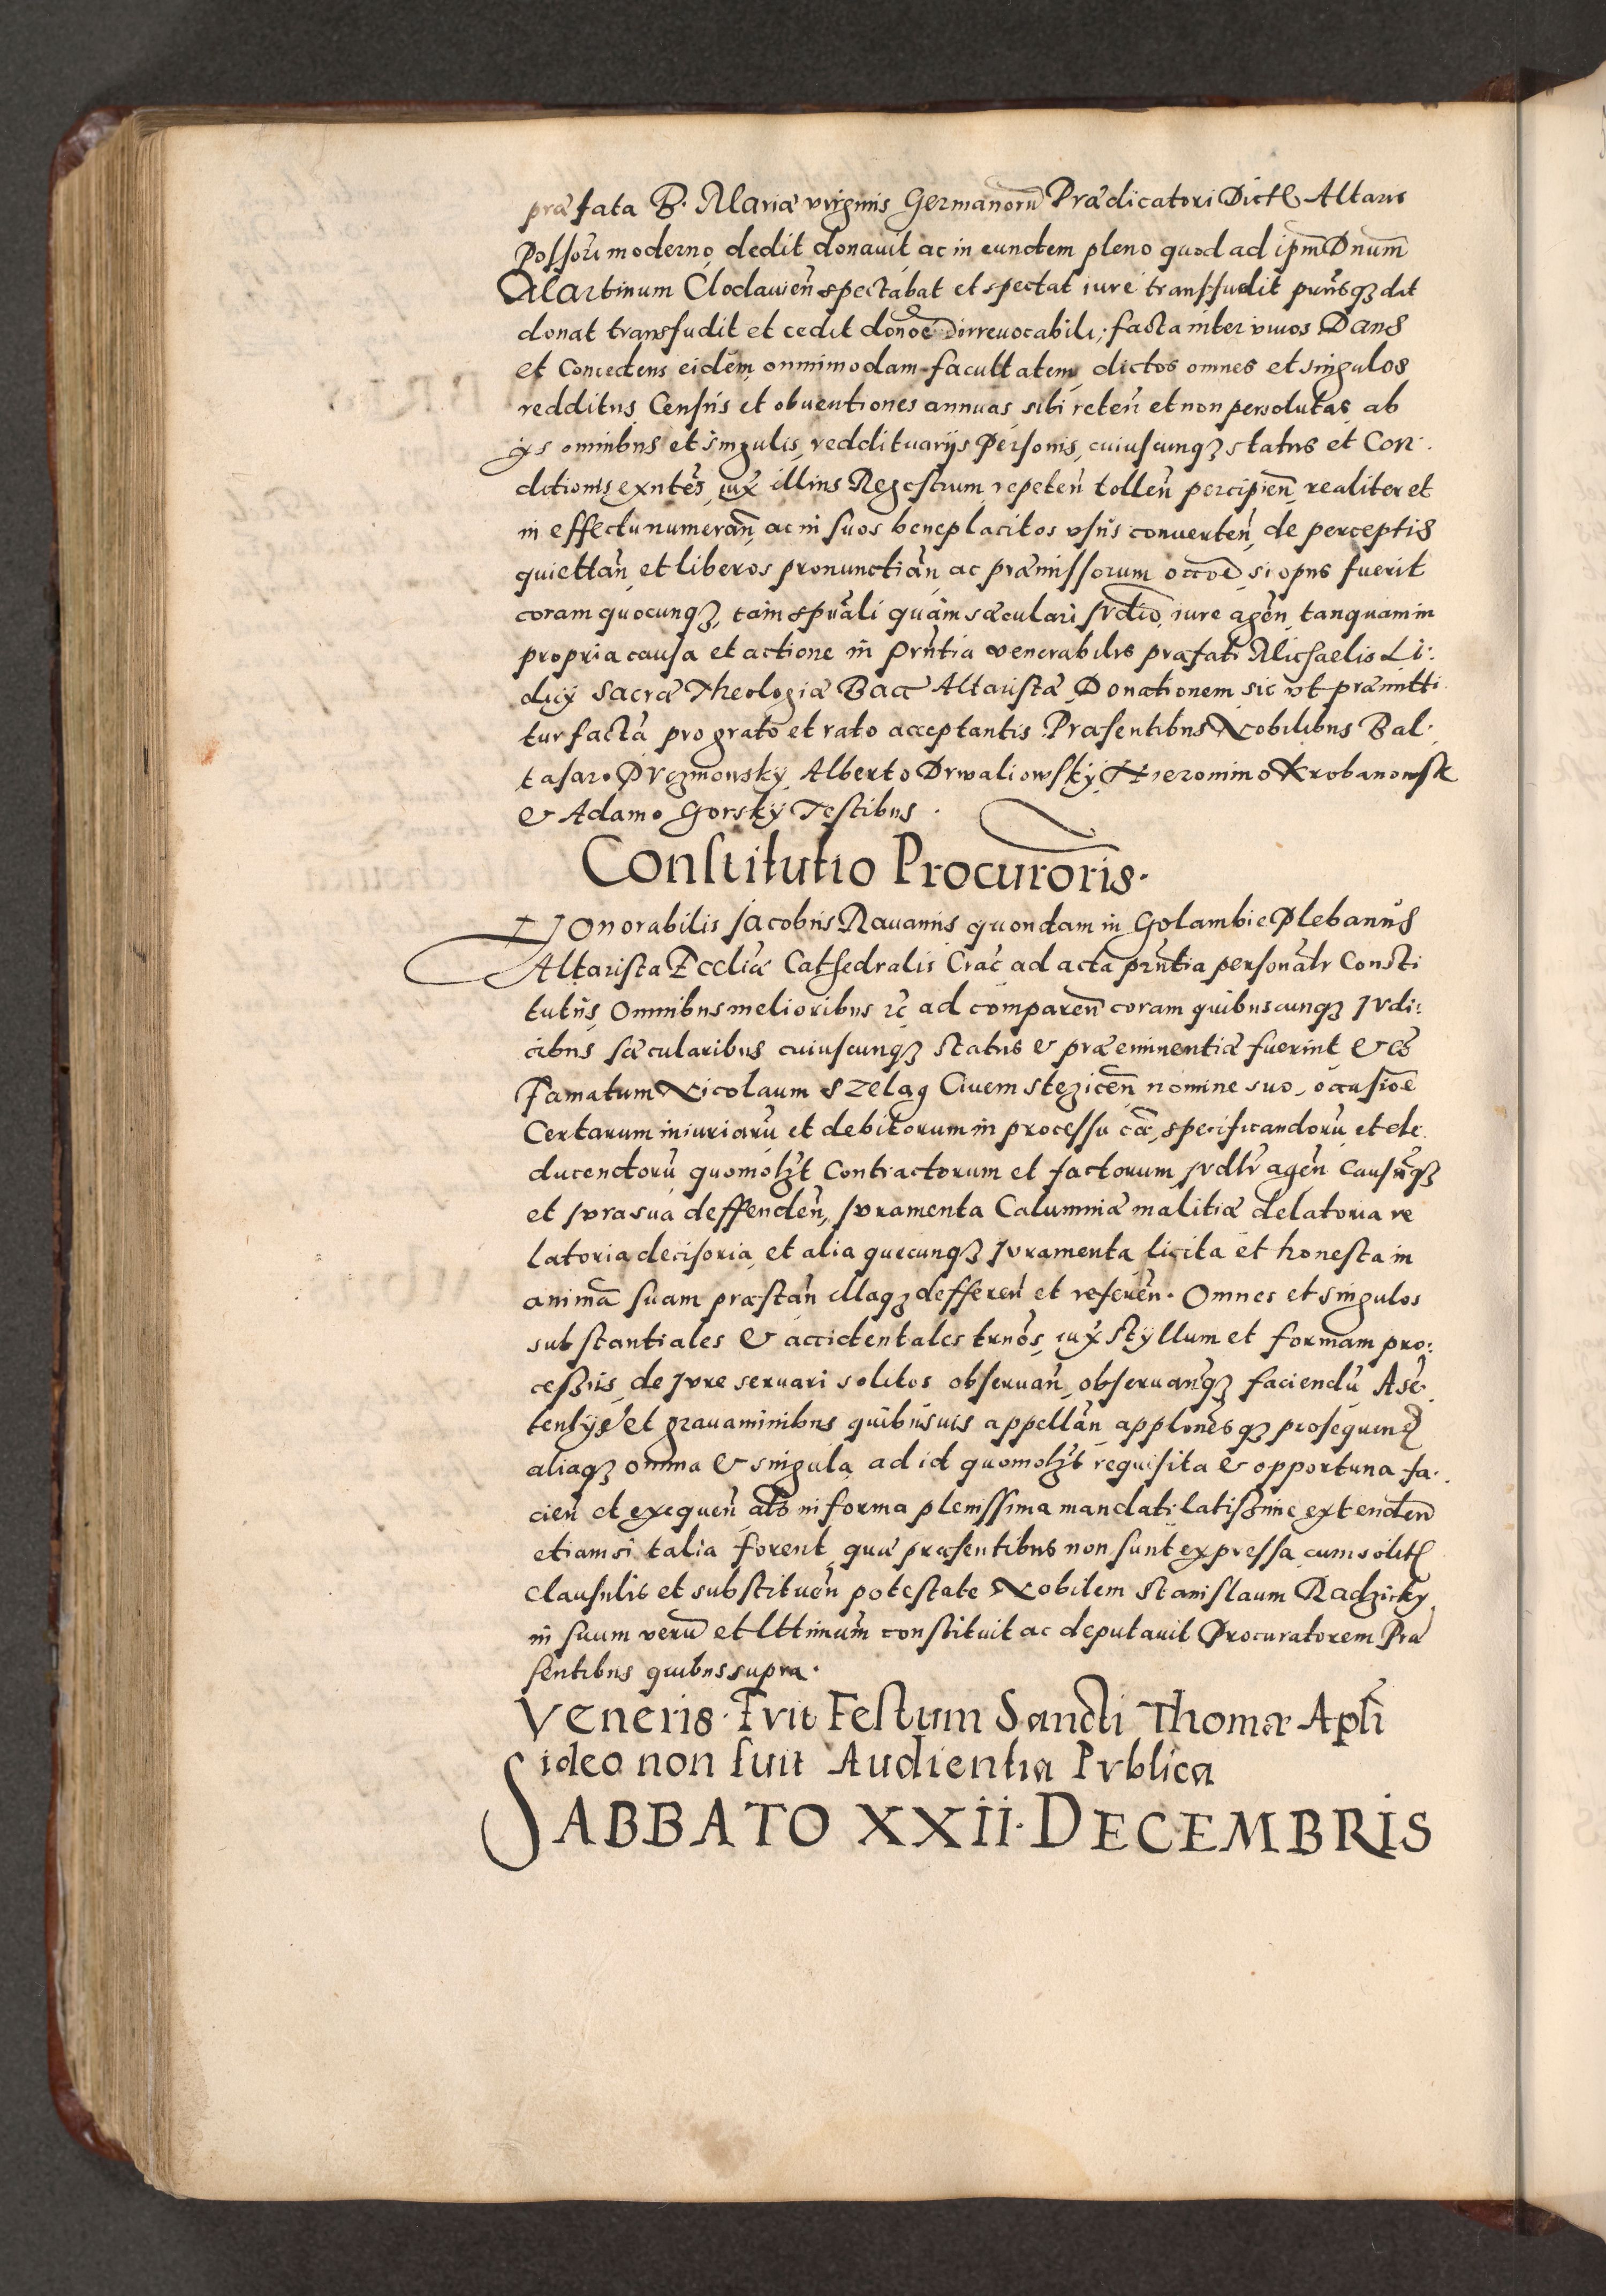 præfata B. Mariæ virginis Germanorū Prædicatori Dictę Altaris
Possori moderno, dedit donauit ac in eundem pleno quod ad ipm̄ Dnum̄
Martinum Clodauień spectabat et spectat iure transfudit pn̄tsqȝ dat
donat transfudit et cedit donōe Dirreuocabili; facta inter viuos Dans
et Concedens eidem, omnimodam facultatem, dictos omnes et singulos
redditus Censūs et obuentiones annuas sibi reteń et non persolutas ab
ijs omnibus et singulis, reddituarijs Personis, cuiuscunqȝ status et Con:
ditionis exntēs, iux̄ illius Regestrum, repeteń tolleń percipień, realiter et
in effectu numerań, ac in suos beneplacitos vsūs conuerteń, de perceptis
quiettań, et liberos pronunctiań, ac præmissorum occōe si opus fuerit
coram quocunqȝ, tam spūali quàm sæculari Jvdīo, iure ageń, tanquam in
propria causa et actione in prn̄tia venerabilis præfati Michaelis Li:
dicij Sacræ Theologiæ Bacc̄ Altaristæ, Donationem sic vt præmitti
tur factà pro grato et rato acceptantis Præsentibus Nobilibus Bal:
tasaro Drezmowsky, Alberto Drwaliowsky, Hieronimo Krobanowsk
& Adamo Gorsky Testibus .
Constitutio Procuroris.
HOnorabilis Jacobus Rauanus quondam in Golambie Plebanus
Altarista Eccliæ Cathedralis Crac̄ ad acta prn̄tia personalr̄ Consti
tutus, Omnibus melioribus &c̄, ad compareń coram quibuscunqȝ Jvdi:
cibus sæcularibus cuiuscunqȝ status & præeminentiæ fuerint & cō
Famatum Nicolaum Szeląg Ciuem steziceń nomine suo, occasiōe
Certarum iniuriarū et debitorum in processu cæ, specificandorū et de
ducendorū quomolȝt Contractorum et factorum jvdlr̄ ageń Causāqȝ
et Jvra sua deffendeń, Jvramenta Calumniæ malitiæ delatoria re
latoria decisoria, et alia quecunqȝ Jvramenta licita et honesta in
animā suam præstań illaqȝ defferen̄ et refereń. Omnes et singulos
substantiales & accidentales trn̄os, iux̄ styllum et formam pro:
cessus, de Jvre seruari solitos obseruań, obseruanqȝ faciendū A sē
tentijs et grauaminibus quibusuis appellań applonesqȝ prosequend̄
aliaqȝ omnia & singula, ad id quomolȝt requisita & opportuna fa:
cień et exequeń al̄s in forma plenissima mandati latissime extenden̄
etiamsi talia forent, quæ præsentibus non sunt expressa, cum solitę
clausulis et substituen̄ potestate Nobilem Stanislaum Radzicky
in suum verū et lttimum constituit ac deputauit Procuratorem Præ
sentibus quibus supra.
Veneris. Fvit Festum Sancti Thomæ Apli
ideo non fuit Audientia Pvblica
SABBATO XXII. DECEMBRIS